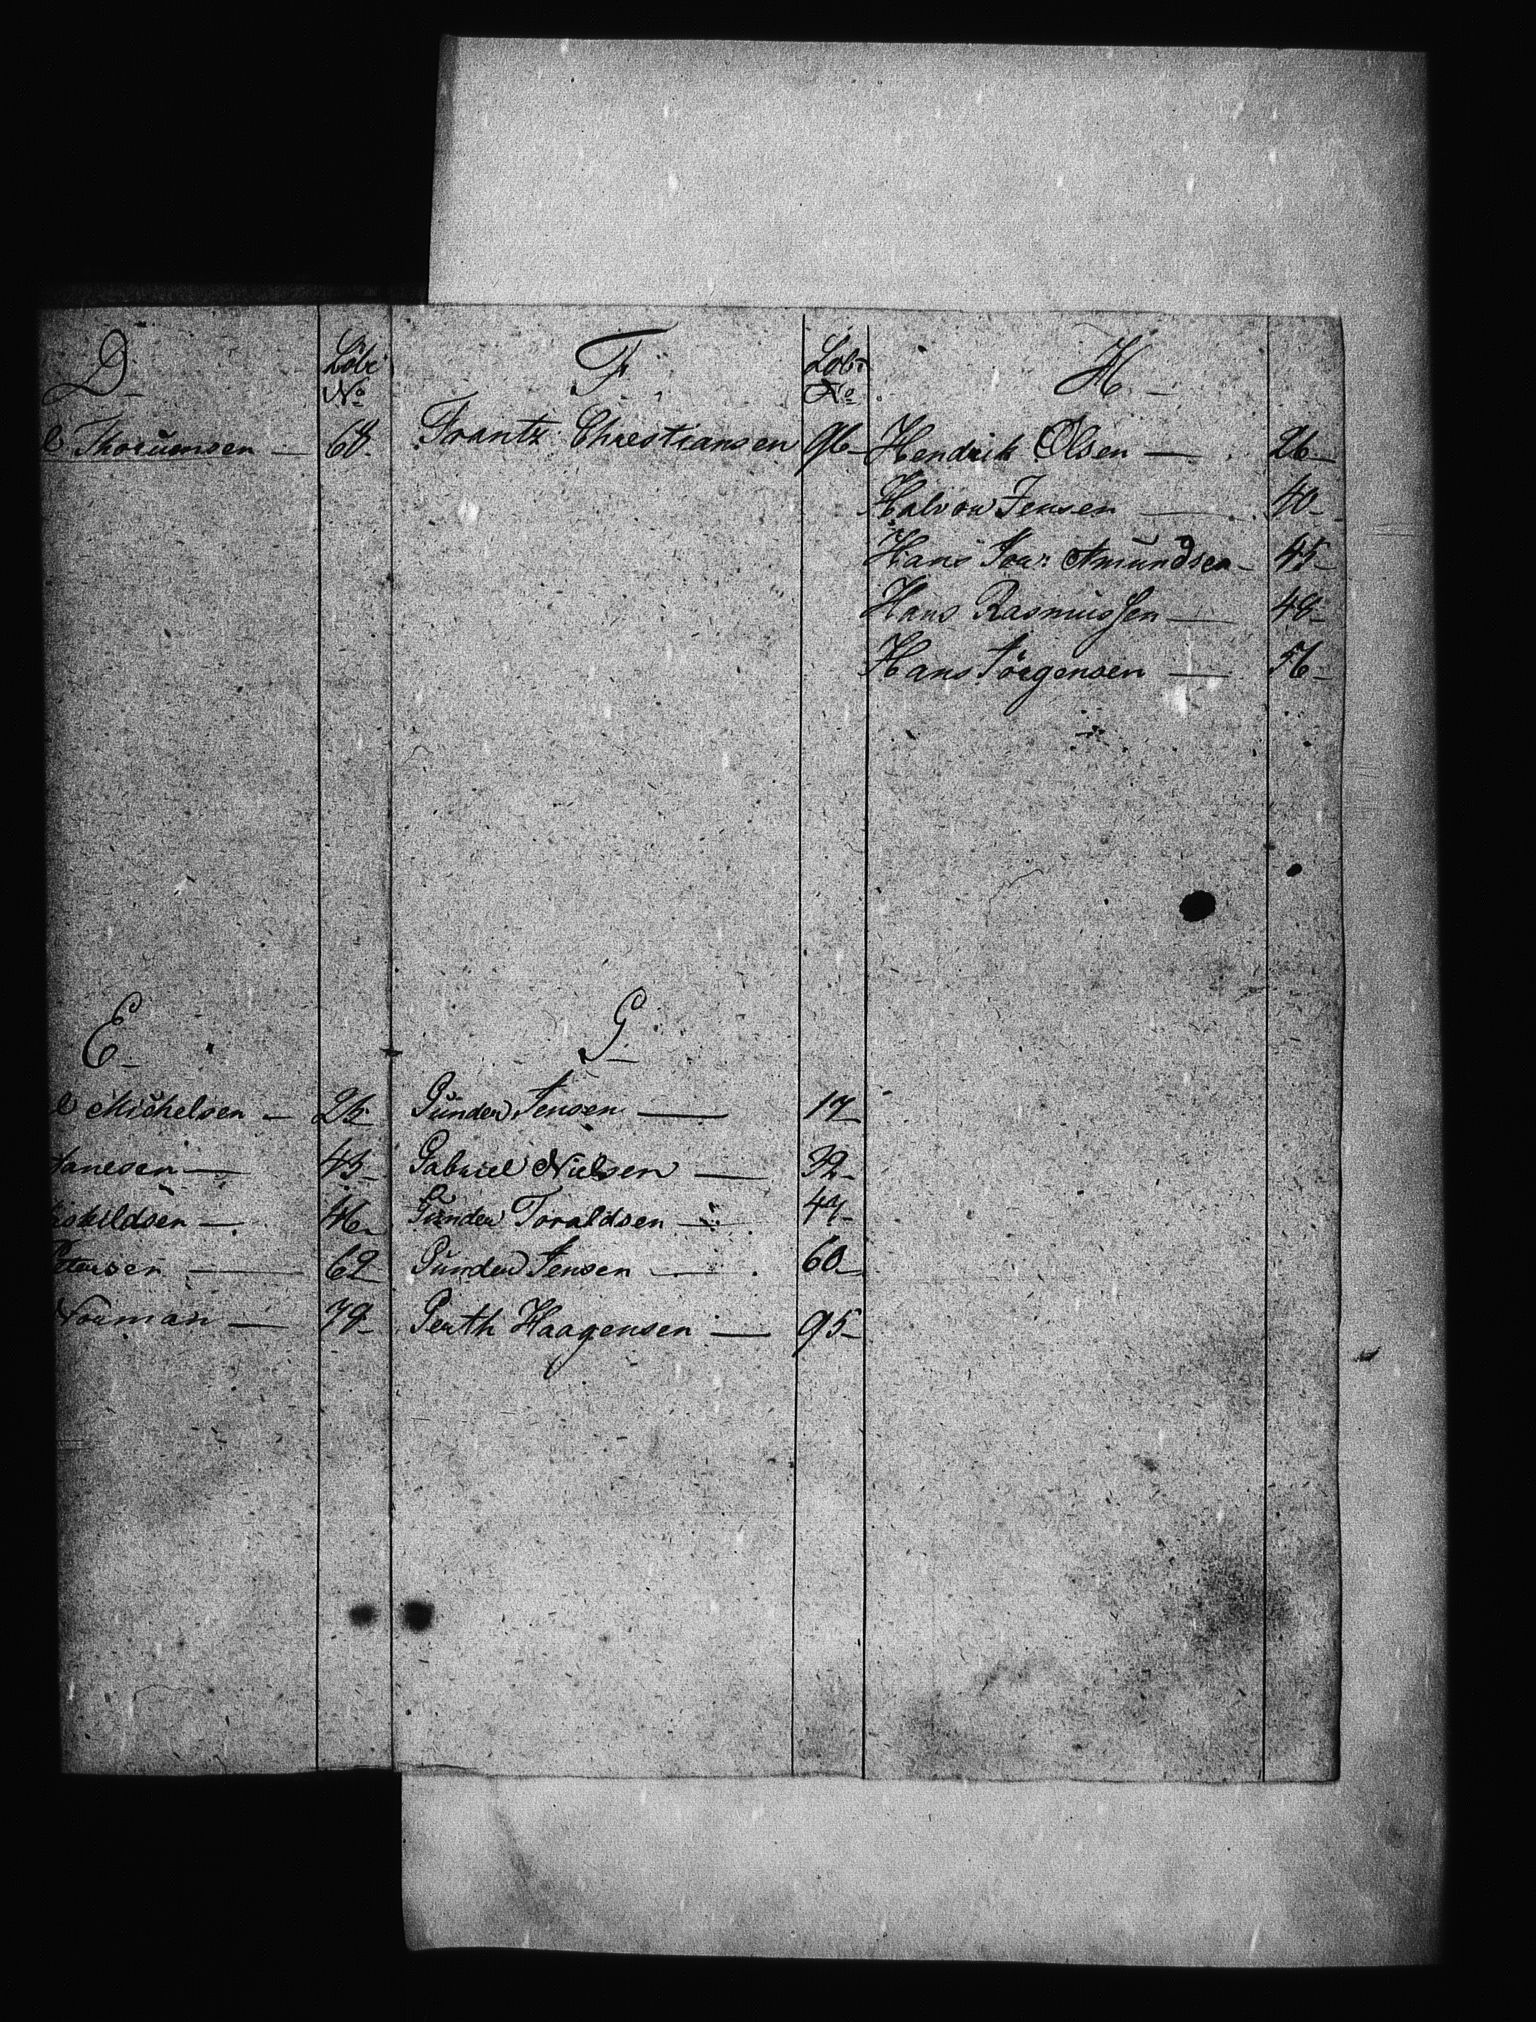 D.
Löbe
No
Thoruensen — 68.
E.
Michelsen — 25
Janesen — 43
skildsen — 46
Petersen — 62
Norman — 79
F.
Löbe
No
Frantz Christiansen 96
G.
Gunder Jensen — 17
Gabriel Nielsen — 32
Gunder Toraldsen — 47
Gunder Jensen — 60
Gerth Haagensen — 95
H.
Hendrik Olsen — 26
Halvor Jensen — 40
Hans Amundsen 45
Hans Rasmussen — 48
Hans Jörgensen — 56